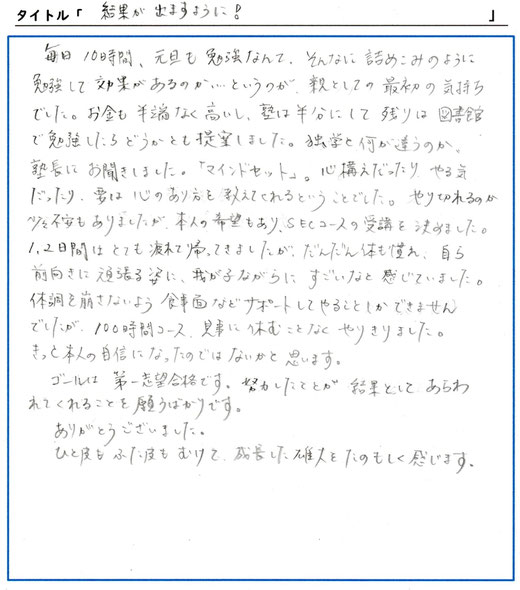 タイトル「 結果が出ますように! 」
毎日10時間、元旦も勉強なんて、そんなに詰めこみのように
勉強して効果があるのか…というのが、親としての最初の気持ち
でした。お金も半端なく高いし、塾は半分にして残りは図書館
で勉強したらどうかとも提案しました。独学と何が違うのか、
塾長にお聞きしました。「マインドセット」。心構えだったり、やる気
だったり、要は心のあり方を教えてくれるということでした。やり切れるのか
少々不安もありましたが、本人の希望もあり、SECコースの受講を決めました。
1,2日間はとても疲れて帰ってきましたが、だんだん体も慣れ、自ら
前向きに頑張る姿に、我が子ながらに すごいなと感じていました。
体調を崩さないよう 食事面などサポートしてやることしかできません
でしたが、100時間コース、見事に休むことなくやりきりました。
きっと本人の自信になったのではないかと思います。
ゴールは 第一志望合格です。努力したことが 結果として あらわ
れてくれることを願うばかりです。
ありがとうございました。
ひと皮も ふた皮も むけて、成長した雄大をたのもしく感じます。